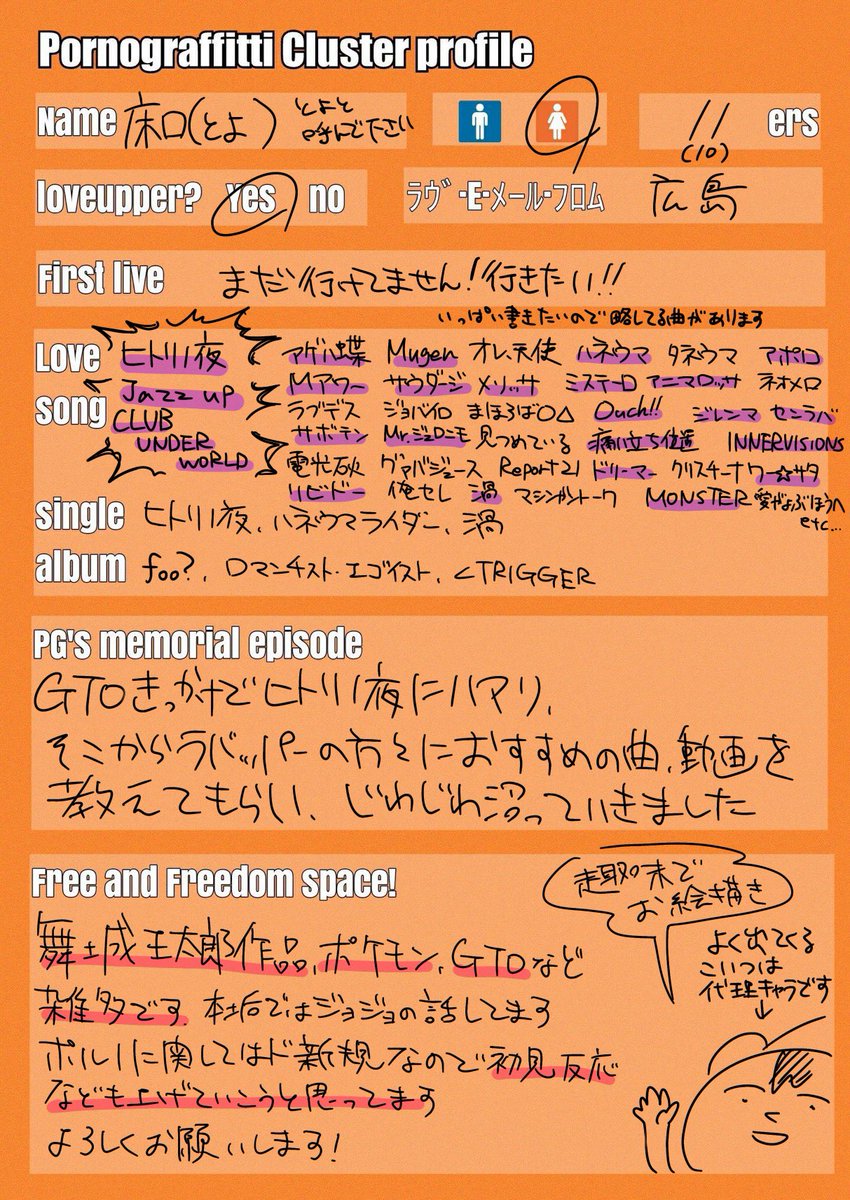 Pornograffitti Cluster profile
Name 床口(とよ) とよと
呼んで下さい
11 ers
(10)
loveupper? Yes no ラヴ・E・メール・フロム 広島
First live まだ行けてません!行きたい!!
いっぱい書きたいので略してる曲があります
Love song
ヒトリノ夜 アゲハ蝶 Mugen オレ、天使 ハネウマ タネウマ アポロ
Jazz up Mアワー サウダージ メリッサ ミステーロ アニマロッサ ネオメロ
CLUB ラブデス ジョバイロ まほろば○△ Ouch!! ジレンマ センラバ
UNDER サボテン Mr.ジェロニモ 見つめている 痛い立ち位置 INNERVISIONS
WORLD 電光石火 グァバジュース Report21 ドリーマー クリスチーナ ワー☆サタ
リビドー 俺セレ 渦 マシンガントーク MONSTER 愛がよぶほうへ
etc...
single ヒトリノ夜、ハネウマライダー、渦
album foo?、ロマンチスト・エゴイスト、∠TRIGGER
PG's memorial episode
GTOきっかけでヒトリノ夜にハマり、
そこからラバッパーの方々におすすめの曲、動画を
教えてもらい、じわじわ沼っていきました
Free and Freedom space!
趣味で
お絵描き
舞城王太郎作品、ポケモン、GTOなど
雑多です。本垢ではジョジョの話してます
ポルノに関してはド新規なので初見反応
なども上げていこうと思ってます
よろしくお願いします!
よく出てくる
こいつは
代理キャラです